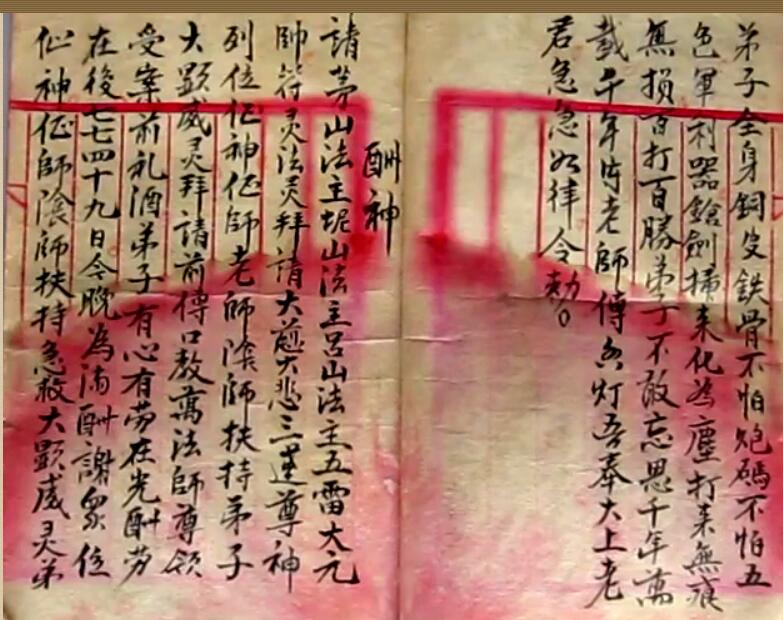 弟子全身銅皮鉄骨不怕炮碼不怕五
色軍利器鎗劍掃来化為塵打来無痕
無損百打百勝弟子不敢忘恩千年萬
載千年時老師傳香灯吾奉大上老
君急急如律令勅。
酬神
請茅山法主坭山法主呂山法主五雷大元
帥符灵法灵拜請大慈大悲三達尊神
列位仙神仙師老師陰師扶持弟子
大顯威灵拜請前傳口教萬法師尊領
受案前礼酒弟子有心有劳在先酬劳
在後七七四十九日今晚為満酬謝眾位
仙神仙師陰師扶持急救大顯威灵弟